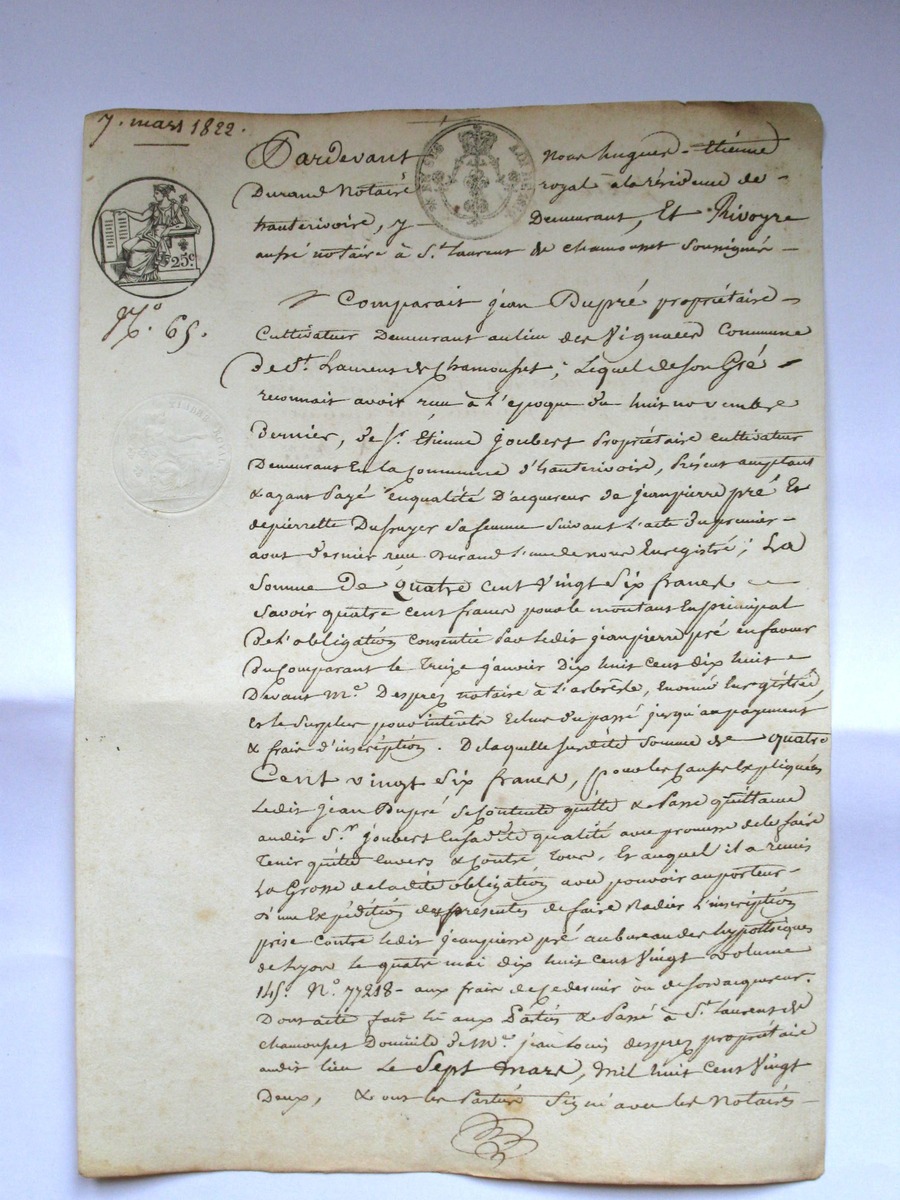 7. mars 1822.
Pardevant nous hugues - étienne
Durand Notaire royal à la résidence de -
hauterivoire, y Demeurant, Et Rivoyre
aussi notaire à St. Laurent de chamousset soussignés -
25c.
N.o 65.
Comparait jean Dupré propriétaire -
Cultivateur Demeurant au lieu des Vignaers Commune
De St. Laurent de Chamousset; Lequel de son Gré -
reconnait avoir reçu à l'epoque du huit novembre
Dernier, de Sr. Etienne joubert Propriétaire cultivateur
Demeurant En la Commune d'hauterivoire, Présent acceptant
& ayant Payé En qualité D'acquereur de jeanpierre pré Et
de pierrette Dussuyer Sa femme Suivant L'acte Du premier -
aout Dernier reçu Durand L'un de nous Enregistré; La
Somme De quatre cent Vingt Six francs
Savoir quatre cent francs pour le montant En principal
De L'obligation consentie Par Ledit jeanpierre pré en faveur
Du Comparant le treize janvier Dix huit cent dix huit
Devant Me. Desprez notaire à L'arbresle, Enregistrée
et le Surplus pour intérêts Echus Du passé jusqu'au payement
& frais d'inscription. De laquelle Susdite Somme de quatre
Cent vingt Six francs, pour les causes Expliquées
Ledit jean Dupré Se Contente quitte & Passe quittance
audit Sr. joubert En sadite qualité avec promesse de le faire
Tenir quitte Envers & Contre Tous. Et auquel il a remis
La Grosse de ladite obligation avec pouvoir au porteur -
d'une Expédition des présentes de faire Radier L'inscription
prise contre Ledit jeanpierre pré au bureau des hypothèques
de Lyon le quatre mai dix huit cent Vingt volume
145. N.o 77218 - aux frais de ce dernier ou de son acquereur.
Dont acte fait lu aux Parties & Passé à St. Laurent de
chamousset Domicile de Me. jean Louis desprez propriétaire
audit lieu Le Sept mars, mil huit Cent Vingt
Deux, & ont les Parties Signé avec les Notaires -